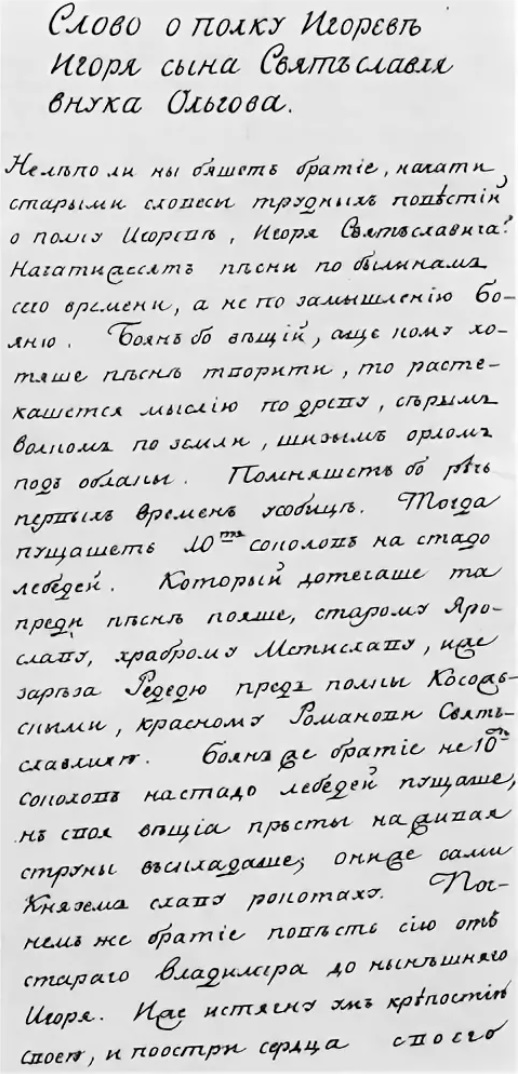 Слово о полку Игоревѣ
Игоря сына Святъславля
внука Ольгова.
Нелѣпо ли ны бяшетъ братіе, начати
старыми словесы трудныхъ повѣстій
о полку Игоревѣ, Игоря Святъславича?
Начатижесятъ пѣсни по былинамъ
сего времени, а не по замышленію Бо-
яню. Боянъ бо вѣщій, аще кому хо-
тяше пѣснь творити, то расте-
кашется мыслію по древу, сѣрымъ
волкомъ по земли, шизымъ орломъ
подъ облакы. Помняшеть бо рѣчь
первыхъ временъ усобицѣ. Тогда
пущашеть 10ть соколовь на стадо
лебедей. Который дотечаше та
преди пѣснь пояше, старому Яро-
славу, храброму Мстиславу, иже
зарѣза Редедю предъ полкы Косожь-
скыми, красному Романови Святъ-
славличю. Боянъ же братіе не 10ть
соколовь настадо лебедей пущаше,
нъ своя вѣщіа пръсты на живая
струны въскладаше; ониже сами
Княземъ славу рокотаху. Поч-
немъ же братіе повѣсть сію отъ
стараго Владиміра до нынѣшняго
Игоря. Иже истягну умь крѣпостію
своею, и поостри сердца своего